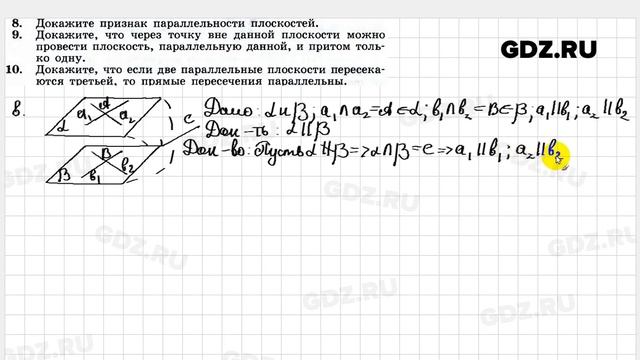 8. Докажите признак параллельности плоскостей.
9. Докажите, что через точку вне данной плоскости можно
провести плоскость, параллельную данной, и притом толь-
ко одну.
10. Докажите, что если две параллельные плоскости пересека-
ются третьей, то прямые пересечения параллельны.
GDZ.RU
8.
A
a₁ a₂
α
c
B
β b₁ b₂
Дано: α и β; a₁∩a₂=A∈α; b₁∩b₂=B∈β; a₁||b₁; a₂||b₂
Док-ть: α||β
Док-во: Пусть α∦β=>α∩β=c=>a₁||b₁; a₂||b₂
GDZ.RU
GDZ.RU
GDZ.RU
GDZ.RU
GDZ.RU